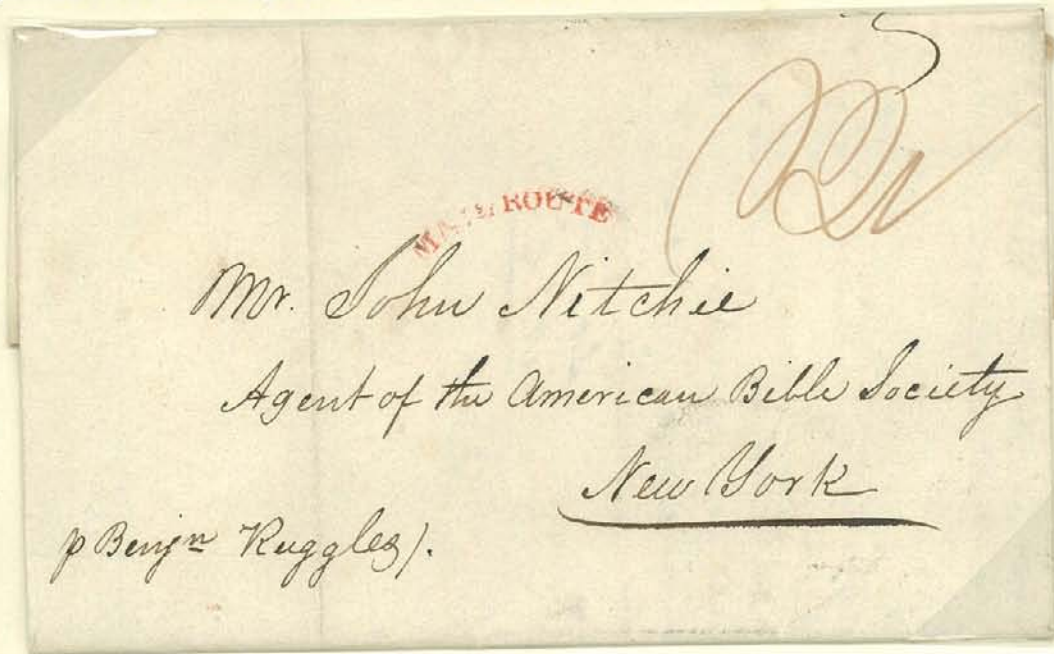 MAIL ROUTE
Mr. John Nitchie
Agent of the American Bible Society
New York
p Benjn Ruggles).